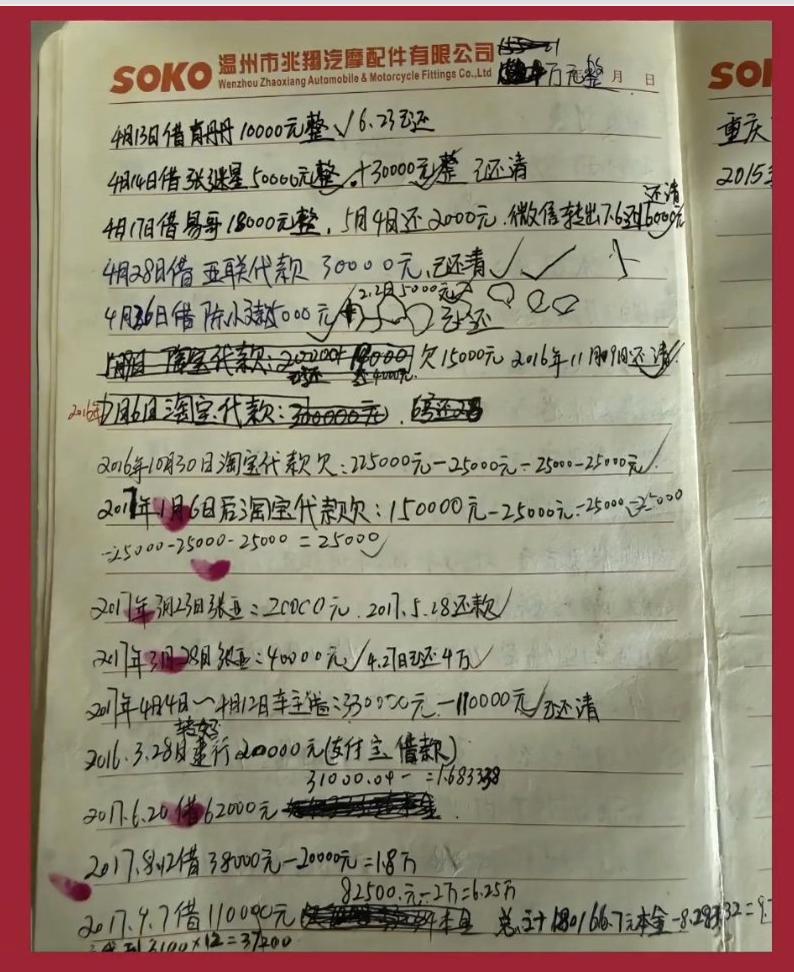 SOKO 温州市兆翔汽摩配件有限公司
Wenzhou Zhaoxiang Automobile & Motorcycle Fittings Co.,Ltd
万元整 月 日
4月13日借肖丹丹10000元整√6.23已还
4月14日借张继星50000元整√+30000元整 已还清
4月17日借易哥18000元整,5月4日还2000元.微信转出7.6还16000元
还清
4月28日借亚联代款30000元,已还清√√
2.2日5000元
欠15000元 2016年11月09日还清√
2016年7月6日淘宝代款:300000元
2016年10月30日淘宝代款欠:225000元-25000元-25000-25000元√
2017年1月6日后淘宝代款欠:150000元-25000元-25000-25000
-25000-25000-25000=25000√
2017年3月23日张亚:20000元.2017.5.28还款√
2017年3月28日张亚:40000元√4.27日已还4万√
2017年4月4日~4月12日车主贷:330000元-110000元√已还清
2016.3.28日建行20000元(支付宝借款)
31000.04- =1.683338
2017.6.20借62000元
2017.8.12借38000元-20000元=1.8万
82500.元-2万=6.25万
2017.9.7借110000元 本金 总计180166.7元本金-8.28332=9.
3100×12=37200
SO
重庆
2015